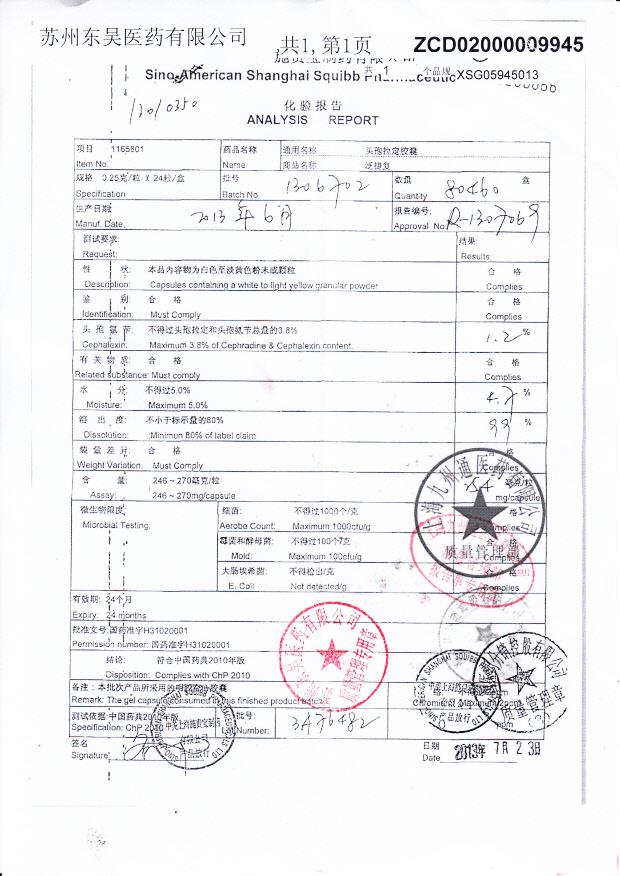 苏州东吴医药有限公司 共1,第1页 ZCD02000009945
Sino-American Shanghai Squibb Pharmaceutic 共 1 个品规 XSG05945013
13010350
化验报告
ANALYSIS REPORT
项目 1165801 药品名称 通用名称 头孢拉定胶囊
Item No. Name 商品名称 泛捷复
规格 0.25克/粒 X 24粒/盒 批号 1306702 数量 80460 盒
Specification Batch No. Quantity
生产日期 2013年6月 报告编号: R-1307069
Manuf. Date Approval No.
测试要求: 结果:
Request: Results:
性 状: 本品内容物为白色至淡黄色粉末或颗粒 合 格
Description: Capsules containing a white to light yellow granular powder Complies
鉴 别: 合 格 合 格
Identification: Must Comply Complies
头孢氨苄: 不得过头孢拉定和头孢氨苄总量的3.8% 1.2 %
Cephalexin: Maximum 3.8% of Cephradine & Cephalexin content.
有关物质: 合 格 合 格
Related substance: Must comply Complies
水 分: 不得过5.0% 4.7 %
Moisture: Maximum 5.0%
溶出度: 不小于标示量的80% 99 %
Dissolution: Minimun 80% of label claim
装量差异: 合 格
Weight Variation: Must Comply Complies
含 量: 246~270毫克/粒 254 毫克/粒
Assay: 246~270mg/capsule mg/capsule
微生物限度: 细菌: 不得过1000个/克 格
Microbial Testing: Aerobe Count: Maximum 1000cfu/g Complies
霉菌和酵母菌: 不得过100个/克 合
Mold: Maximum 100cfu/g Complies
大肠埃希菌: 不得检出/克 合 格
E. Coli Not detected/g Complies
有效期: 24个月
Expiry: 24 months
批准文号:国药准字H31020001
Permission number: 国药准字H31020001
结论: 符合中国药典2010年版
Disposition: Complies with ChP 2010
备注:本批次产品所采用的明胶空心胶囊
Remark: The gel capsule consumed in this finished product batch
测试依据:中国药典2010年版 批号: 3A76482
Specification: ChP 2010 Lot Number:
签名 日期 2013年 7月 23日
Signature Date